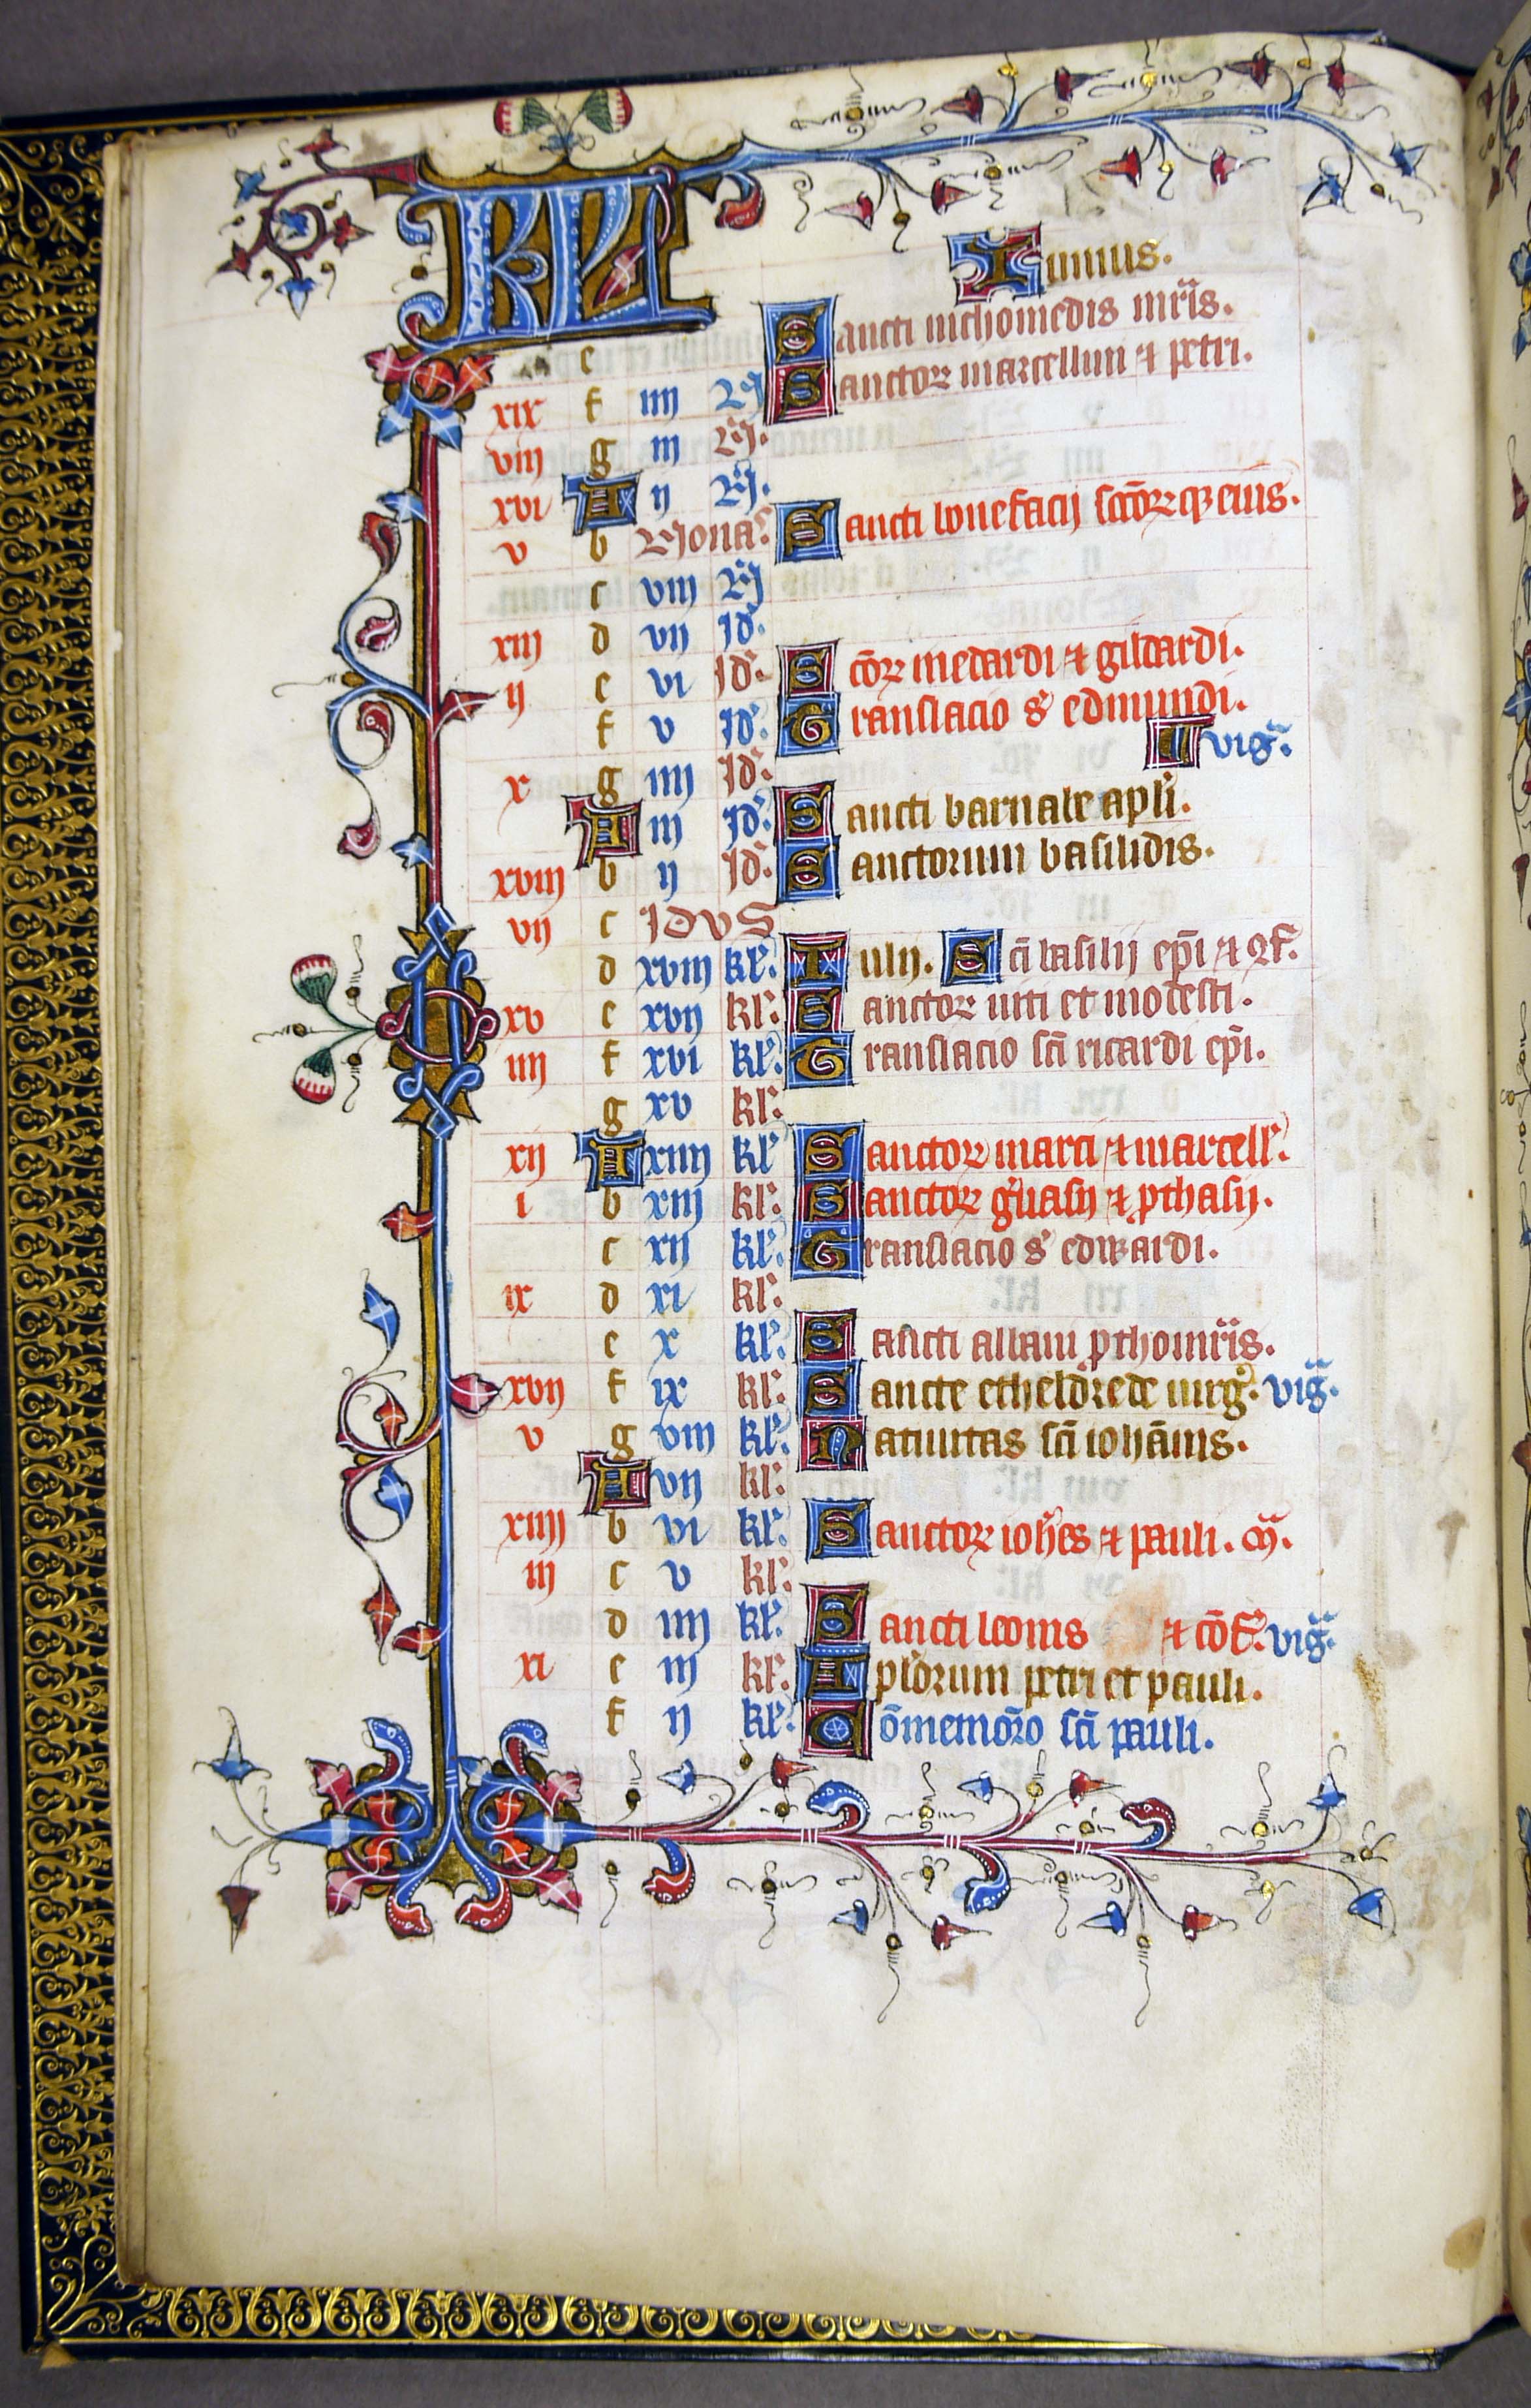 KL Iunius.
e Sancti nichomedis mr̄is.
xix f iiij N Sanctoꝝ marcellini ⁊ petri.
viij g iij N.
xvi A ij N.
v b Nonaſ Sancti bonefacij ſocioꝝ qꝫ eius.
c viij N
xiij d vij Id.
ij e vi Id. Scōꝝ medardi ⁊ gildardi.
f v Id. Tranſlacio s̾ edmundi.
x g iiij Id. vig̾.
A iij Id. Sancti barnabe apl̄i.
xviij b ij Id. Sanctorum baſilidis.
vij c IdvS
d xviij kl̾. Iulij. Sc̄i baſilij ep̄i ⁊ ꝯf̄.
xv e xvij kl̾. Sanctoꝝ uiti et modeſti.
iiij f xvi kl̾. Tranſlacio ſc̄i ricardi ep̄i.
g xv kl̾.
xij A xiiij kl̾ Sanctoꝝ marci ⁊ marcell̾.
i b xiij kl̾. Sanctoꝝ g̾uaſij ⁊ ꝓthaſij.
c xij kl̾. Tranſlacio s̾ edwardi.
ix d xi kl̾.
e x kl̾. Sancti albani ꝓthomr̄is.
xvij f ix kl̾. Sancte etheldꝛede uirg̾. vig̾.
v g viij kl̾. Natiuitas ſc̄i ioh̄ānis.
A vij kl̾.
xiiij b vi kl̾. Sanctoꝝ ioh̄es ⁊ pauli. m̄.
iij c v kl̾.
d iiij kl̾. Sancti leonis ⁊ cōf̄. vig̾.
xi e iij kl̾. Apl̄oꝛum petri et pauli.
f ij kl̾. Cōmemoꝛ̄o ſc̄i pauli.